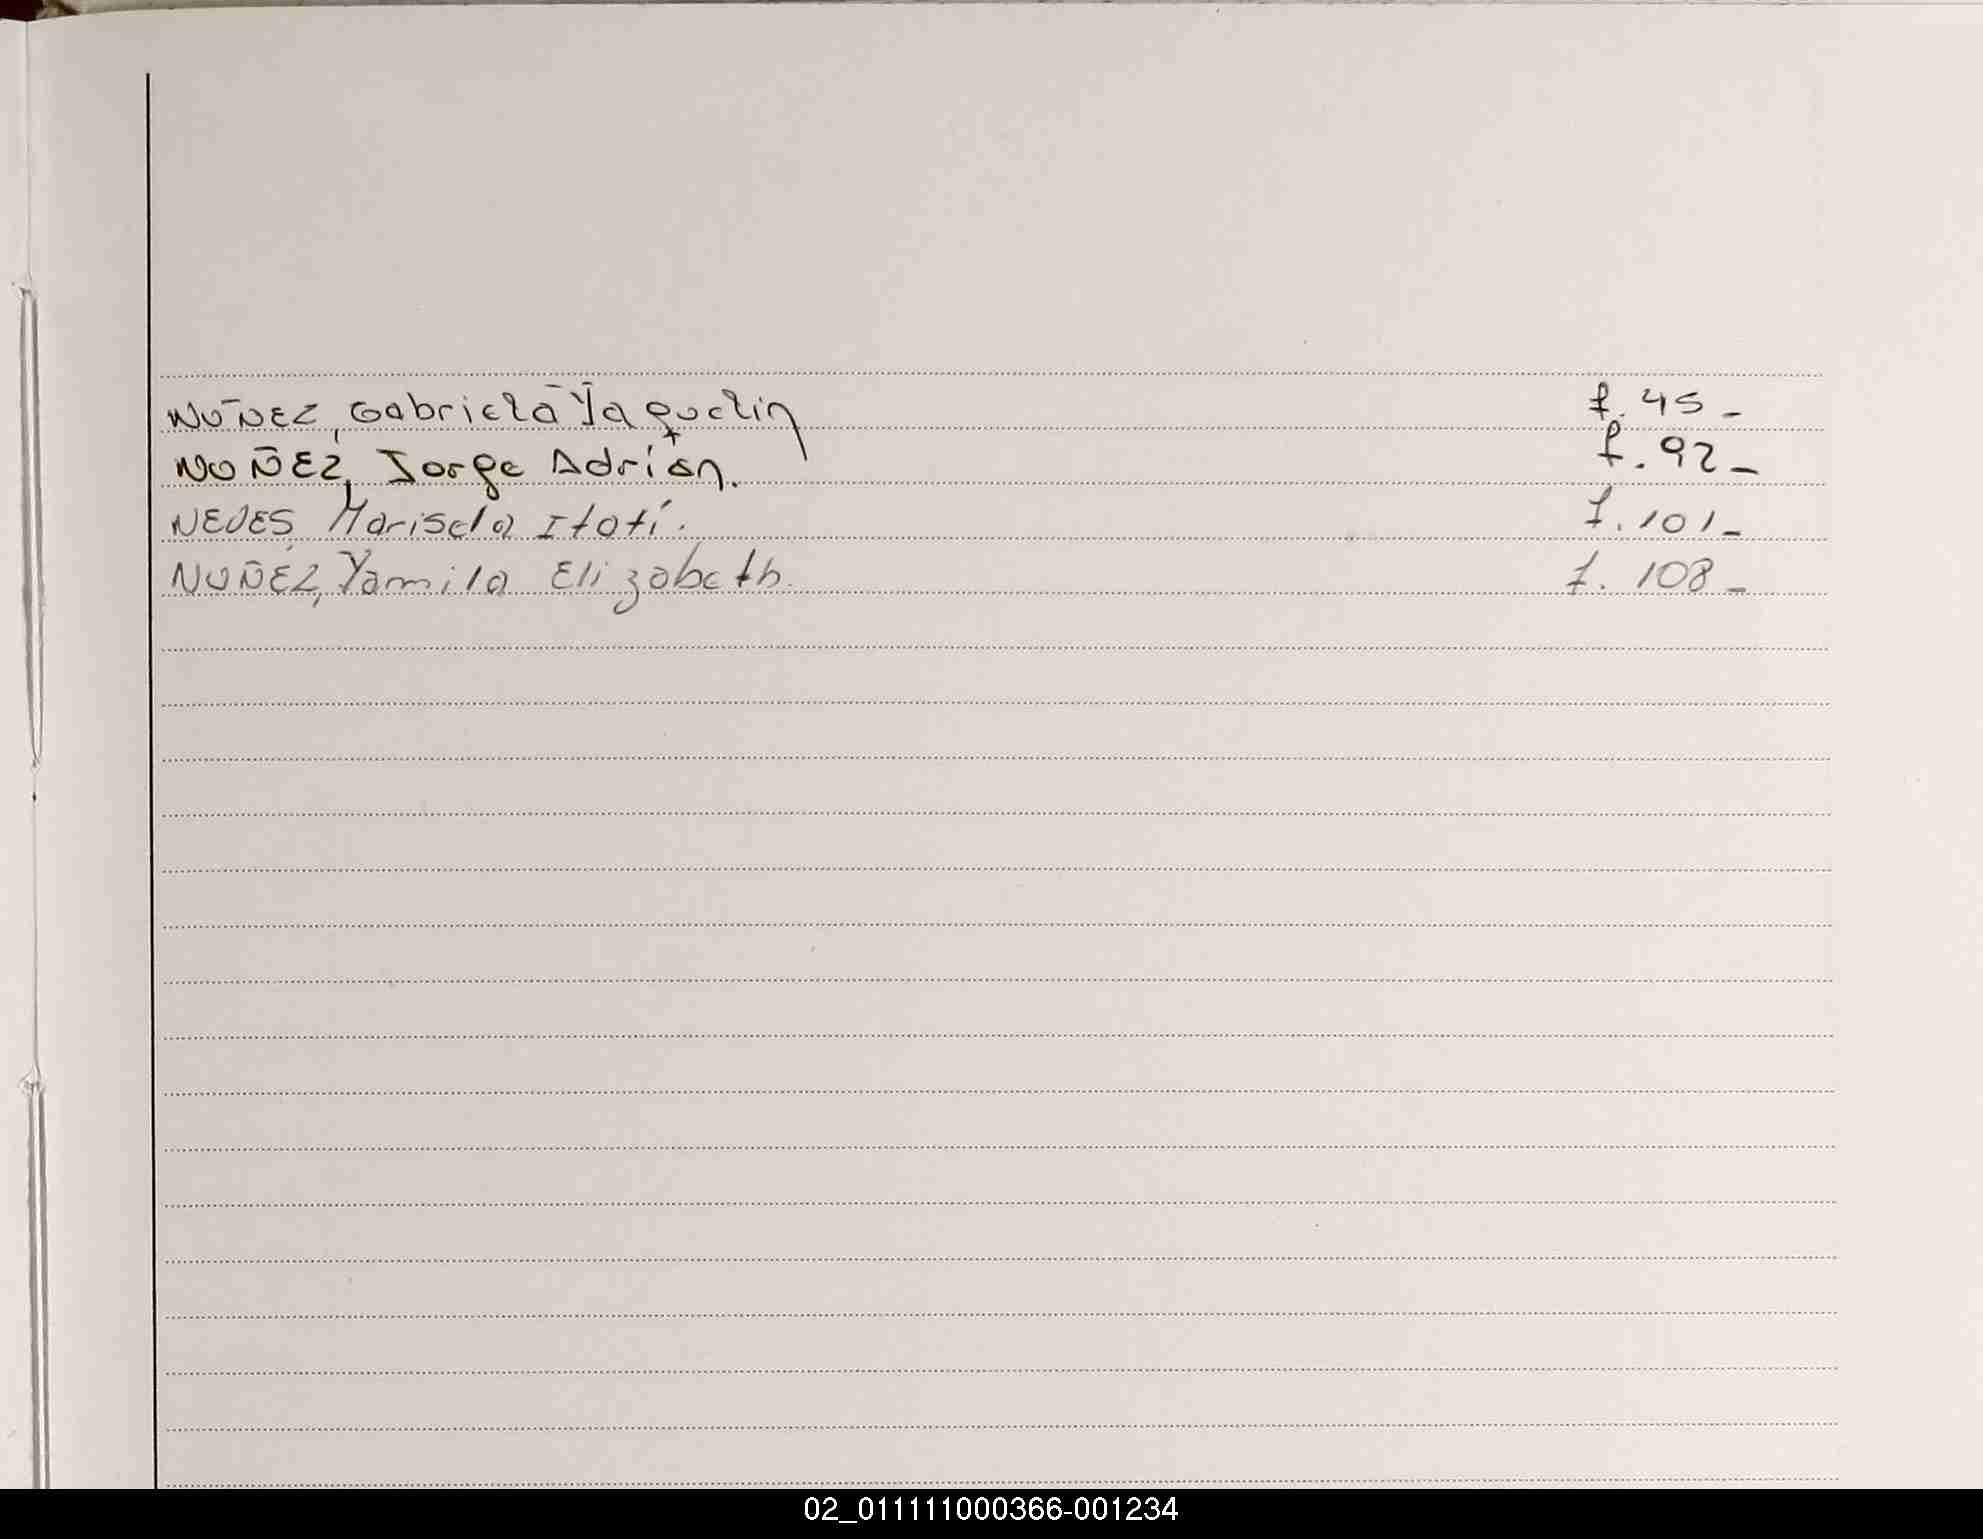 NUÑEZ, Gabriela Yaquelin f. 45_
NUÑEZ, Jorge Adrián. f. 92_
NEVES, Marisela Itatí. f. 101_
NUÑEZ, Yamila Elizabeth. f. 108_
02_011111000366-001234